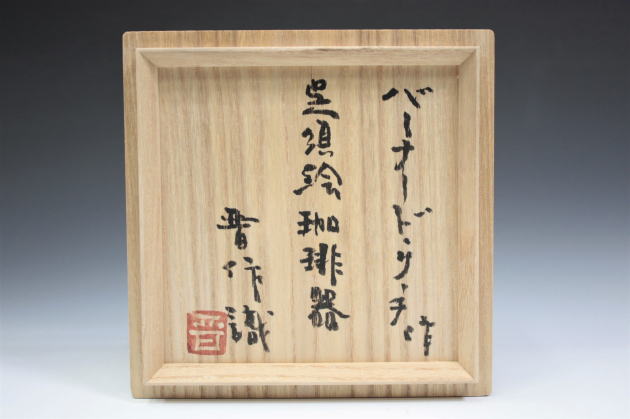 バーナード・リーチ作
呉須絵珈琲器
晋作識
晋